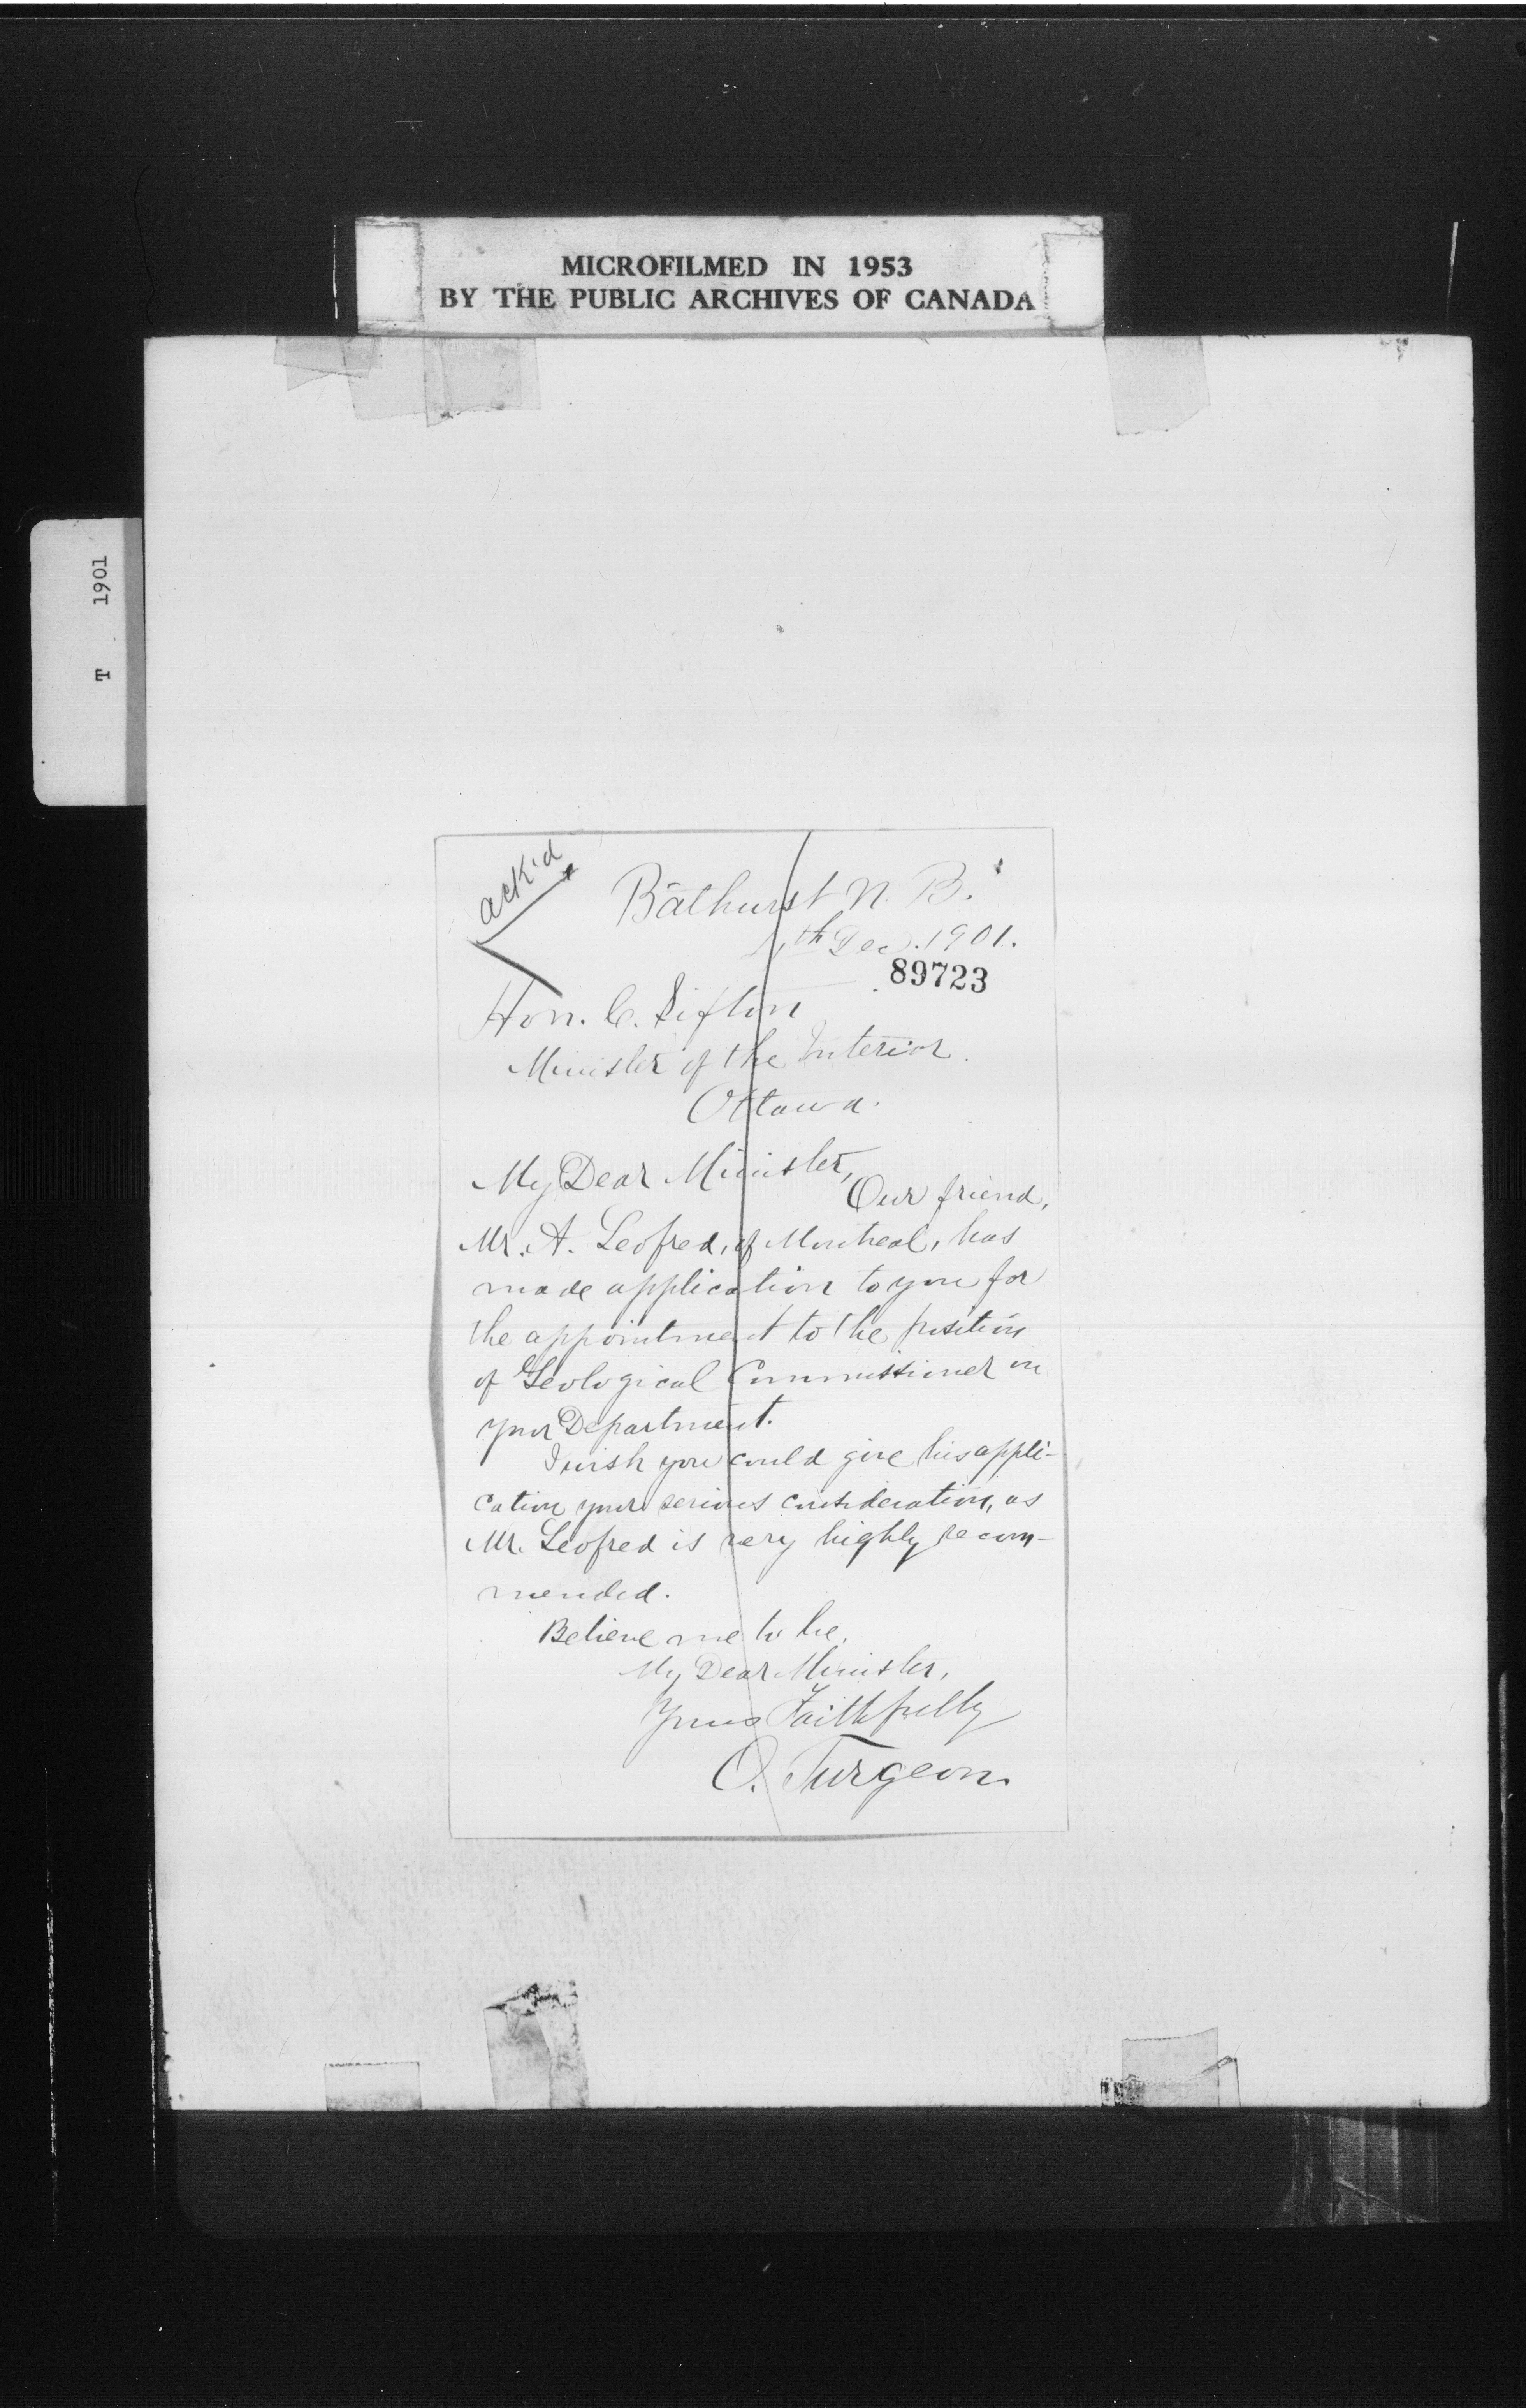 MICROFILMED IN 1953
BY THE PUBLIC ARCHIVES OF CANADA
T 1901
ack'd
Bathurst N. B.
4th Dec. 1901.
89723
Hon. C. Sifton
Minister of the Interior.
Ottawa.
My Dear Minister,
Our friend,
Mr. A. Leofred, of Montreal, has
made application to you for
the appointment to the position
of Geological Commissioner in
your Department.
I wish you could give his appli-
cation your serious consideration, as
Mr. Leofred is very highly recom-
mended.
Believe me to be,
My Dear Minister,
Yours Faithfully
O. Turgeon